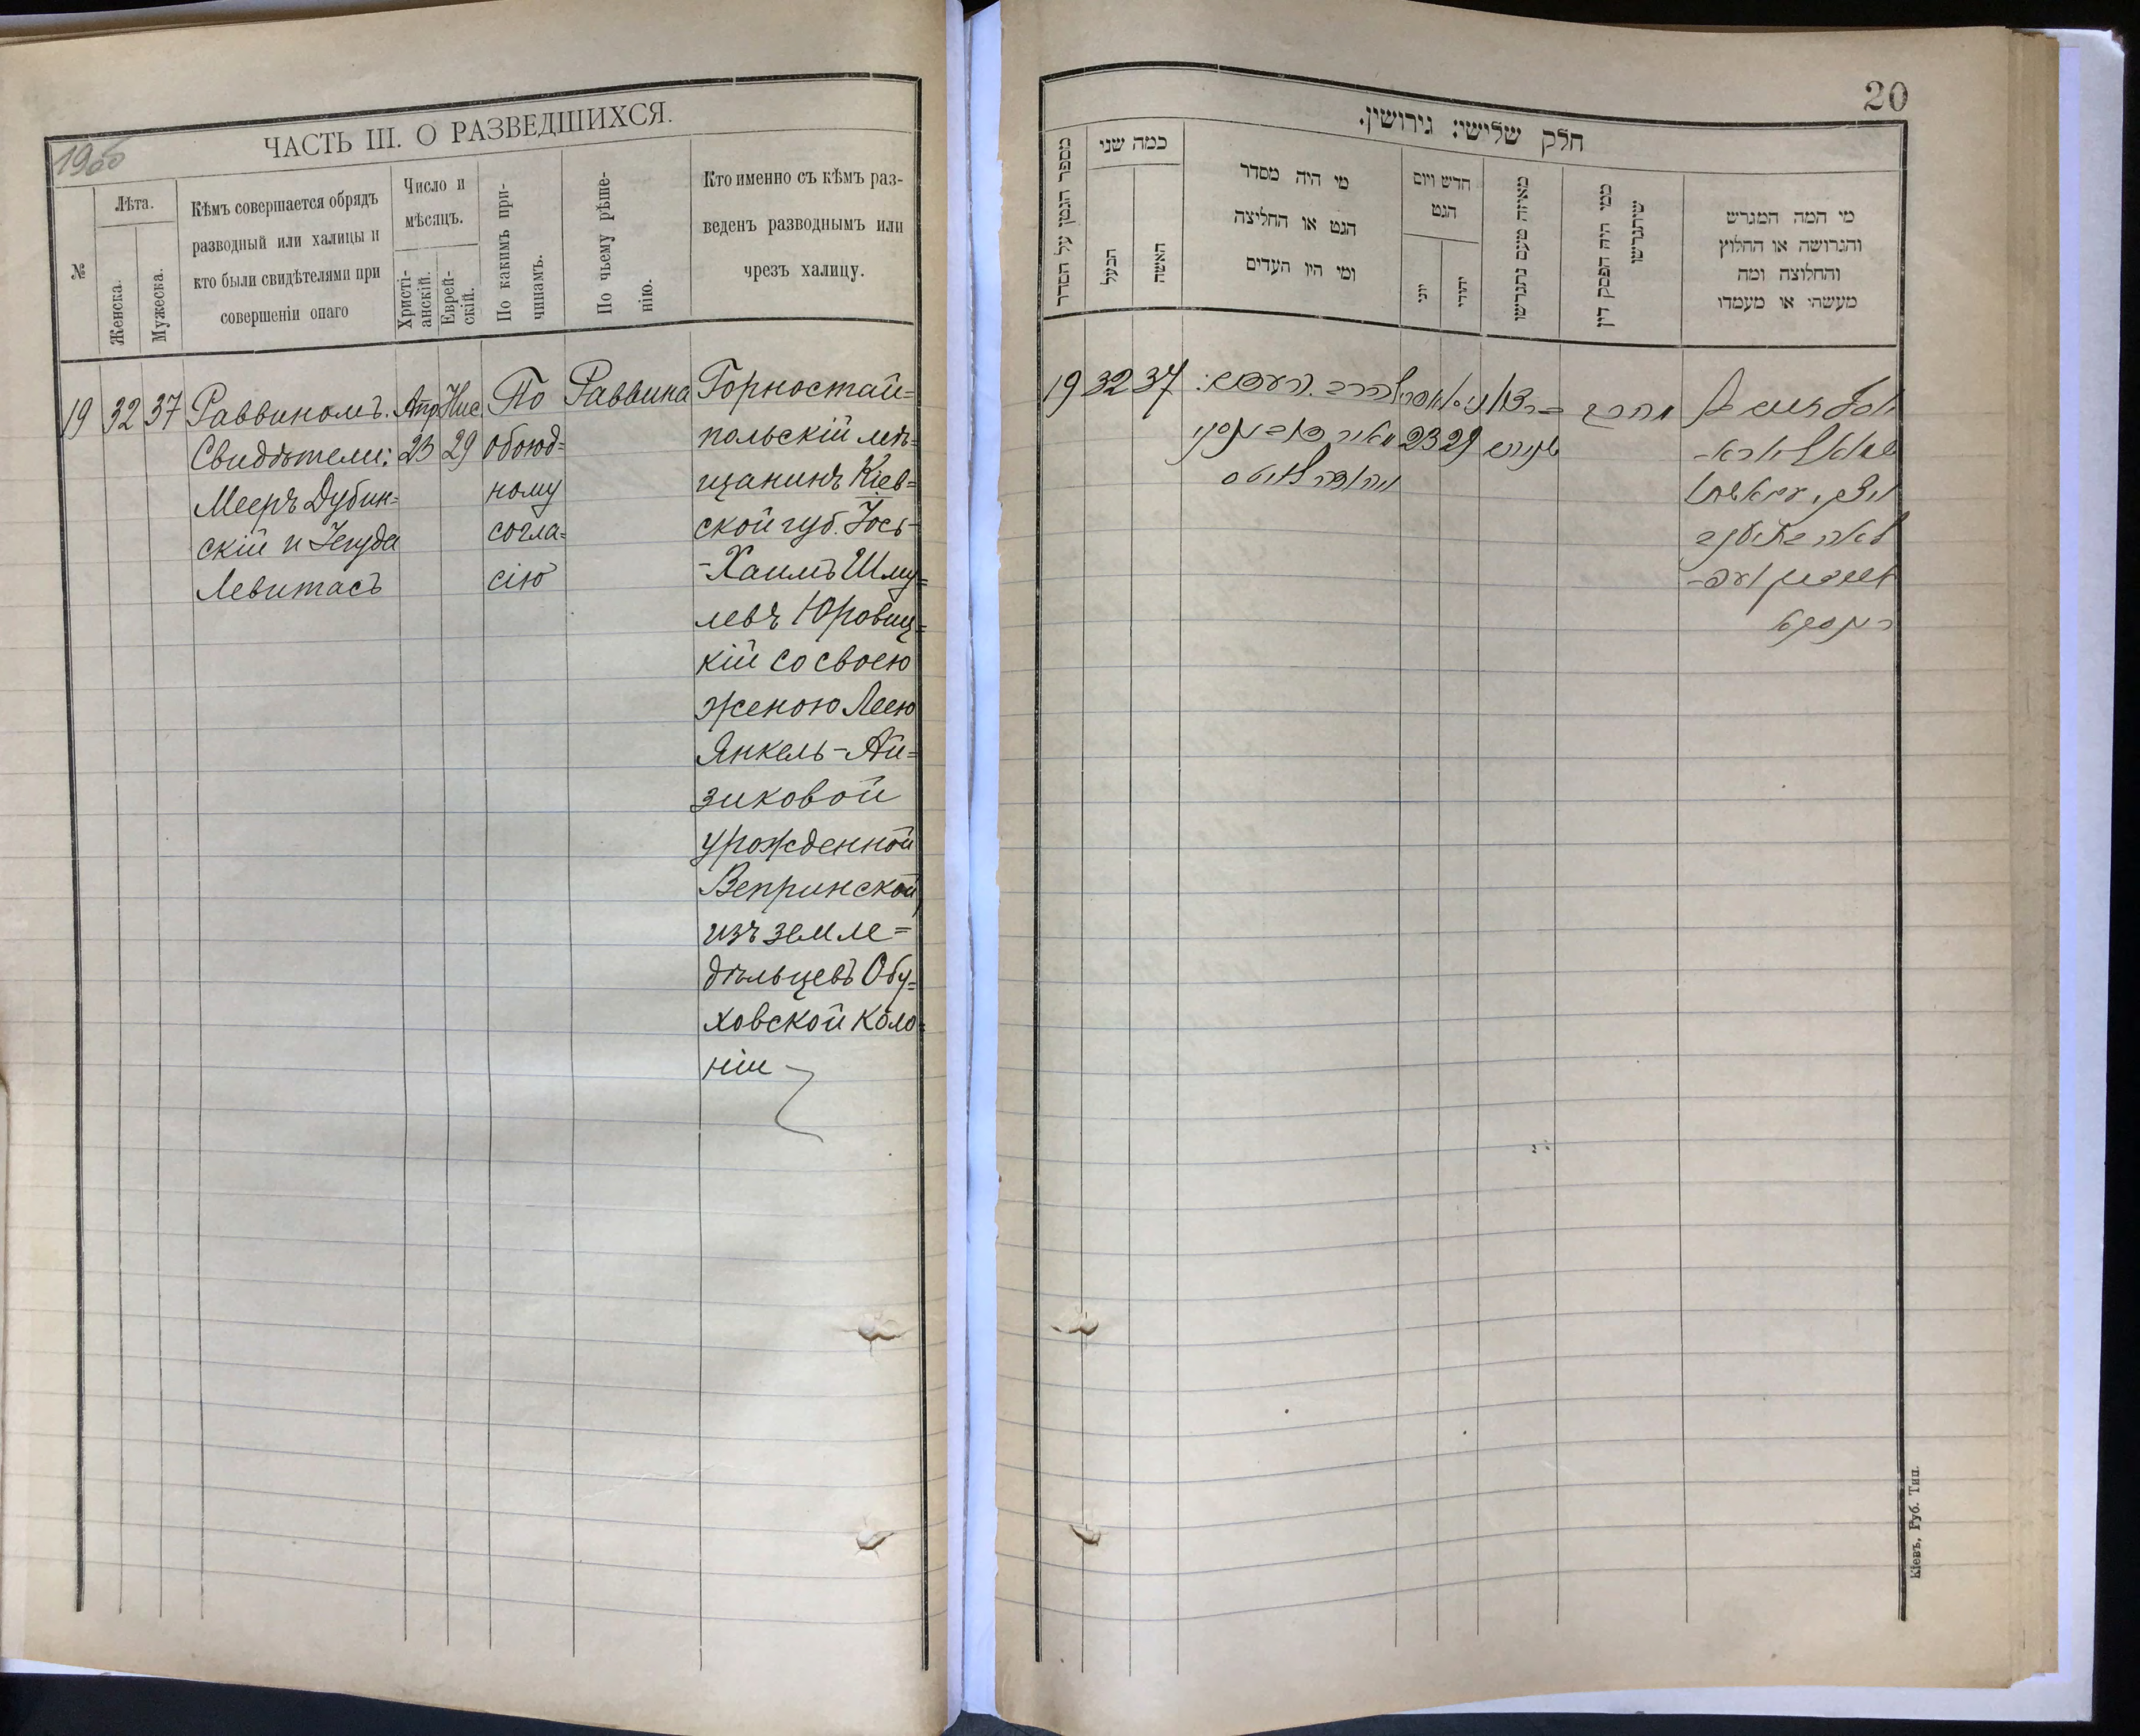 ЧАСТЬ III. О РАЗВЕДШИХСЯ.
1900
№
Лѣта.
Женска.
Мужеска.
Кѣмъ совершается обрядъ
разводный или халицы и
кто были свидѣтелями при
совершеніи онаго
Число и
мѣсяцъ.
Христі-
анскій.
Еврей-
скій.
По какимъ при-
чинамъ.
По чьему рѣше-
нію.
Кто именно съ кѣмъ раз-
веденъ разводнымъ или
чрезъ халицу.
19
32
37
Раввиномъ.
Свидѣтели:
Мееръ Дубин=
скій и Іегуда
Левитасъ
Апр
23
Нис
29
По
обоюд=
ному
согла=
сію
Раввина
Горностай=
польскій мѣ=
щанинъ Кіев=
ской губ. Іось-
-Хаимъ Шму=
левъ Юровиц=
кій со своею
женою Леею
Янкель-Ай=
зиковой
урожденной
Вепринской,
изъ земле=
дѣльцевъ Обу=
ховской коло=
ніи
20
חלק שלישי: גירושין.
מספר הגטין על הסדר
כמה שני
הבעל
האשה
מי היה מסדר
הגט או החליצה
ומי היו העדים
חדש ויום
הגט
יוני
יהודי
מאיזה טעם נתגרשו
ממי היה הפסק דין
שיתגרשו
מי המה המגרש
והגרושה או החלוץ
והחלוצה ומה
מעשהי או מעמדו
19
32
37
23
29
Кіевъ, Губ. Тип.